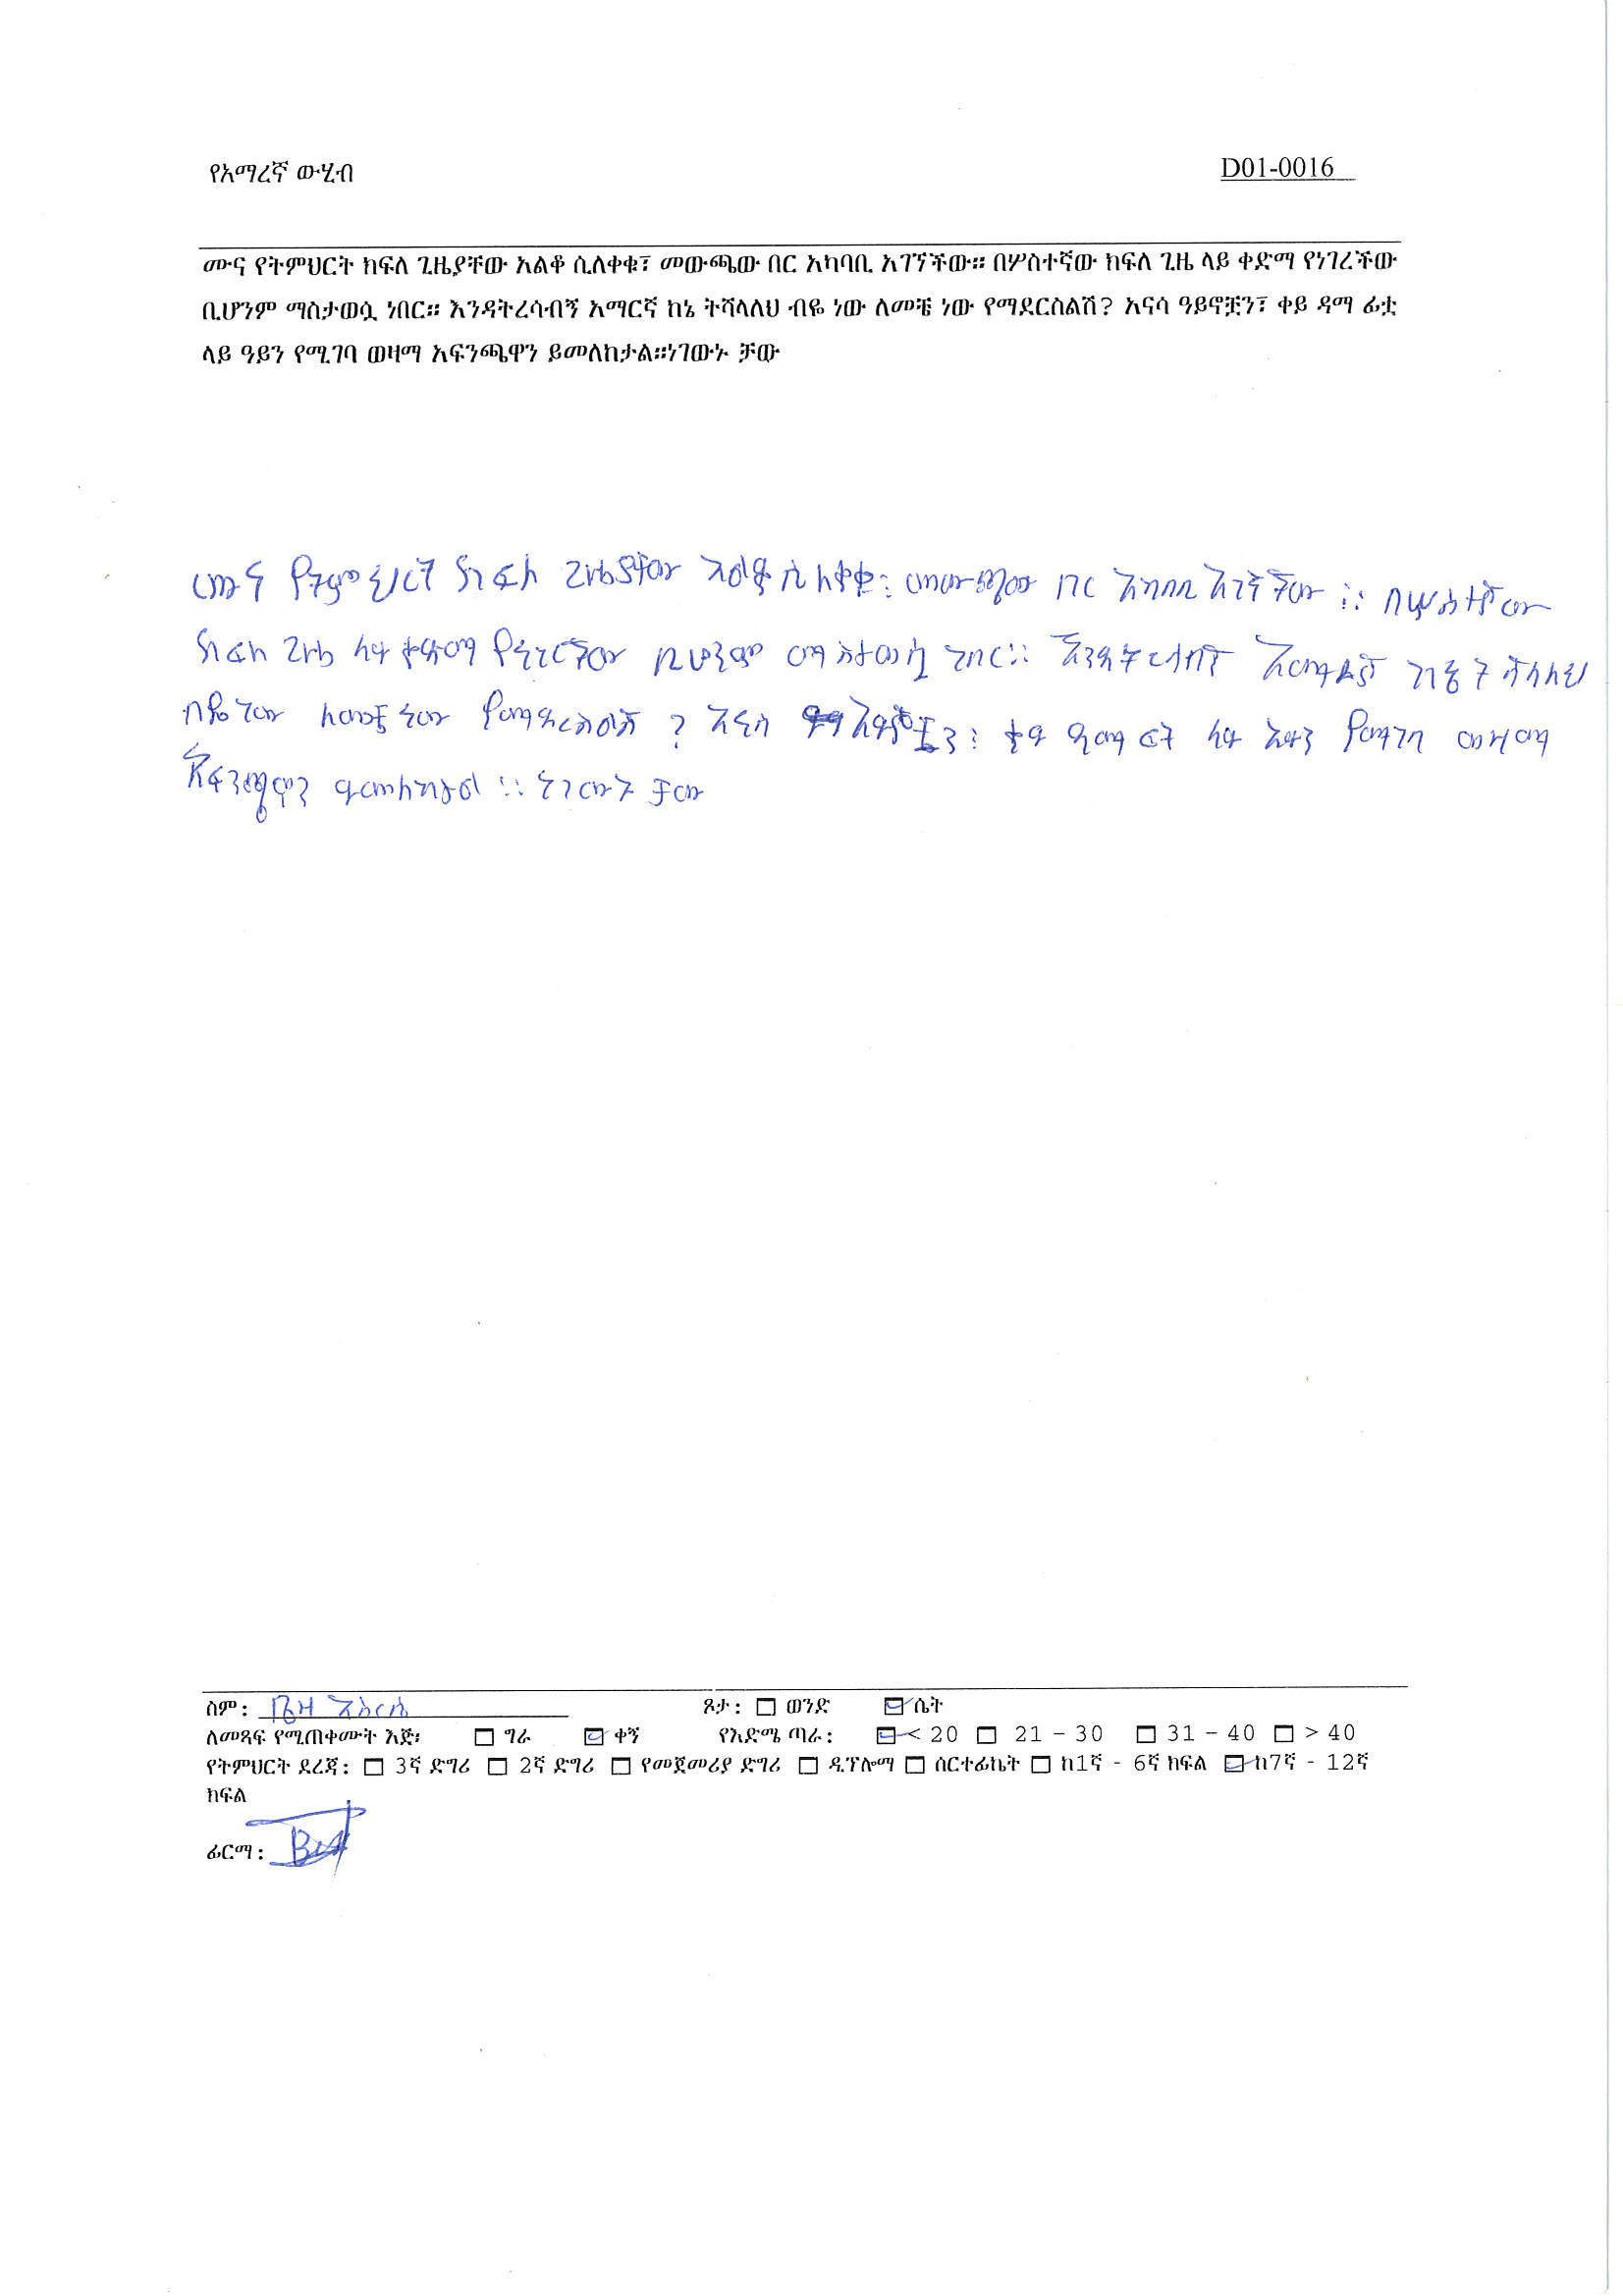 የአማረኛ ውሂብ D01-0016
ሙና የትምህርት ክፍለ ጊዜያቸው አልቆ ሲለቀቁ፣ መውጫው በር አካባቢ አገኘችው። በሦስተኛው ክፍለ ጊዜ ላይ ቀድማ የነገረችው
ቢሆንም ማስታወሷ ነበር። እንዳትረሳብኝ አማርኛ ከኔ ትሻላለህ ብዬ ነው ለመቼ ነው የማደርስልሽ? አናሳ ዓይኖቿን፣ ቀይ ዳማ ፊቷ
ላይ ዓይን የሚገባ ወዛማ አፍንጫዋን ይመለከታል።ነገውኑ ቻው
ሙና የትምህርት ክፍለ ጊዜያቸው አልቆ ሲለቀቁ፣ መውጫው በር አካባቢ አገኛቸው ። በሦስተኛው
ክፍለ ጊዜ ላይ ቀድማ የነገረችው ቢሆንም ማስታወሷ ነበር። እንዳትረሳብኝ አማርኛ ከኔ ትሻላለህ
ብዬ ነው ለመቼ ነው የማደርስልሽ ? አናሳ አይኖቿን፣ ቀይ ዳማ ፊት ላይ አይን የሚገባ ወዛማ
አፍንጫዋን ይመለከታል ። ነገውኑ ቻው
ስም: ቤዛ ጾታ: ☐ ወንድ ☑ ሴት
ለመጻፍ የሚጠቀሙት እጅ፡ ☐ ግራ ☑ ቀኝ የእድሜ ጣራ: ☑ < 20 ☐ 21 - 30 ☐ 31 - 40 ☐ > 40
የትምህርት ደረጃ: ☐ 3ኛ ድግሪ ☐ 2ኛ ድግሪ ☐ የመጀመሪያ ድግሪ ☐ ዲፕሎማ ☐ ሰርተፊኬት ☐ ከ1ኛ - 6ኛ ክፍል ☑ ከ7ኛ - 12ኛ
ክፍል
ፊርማ: